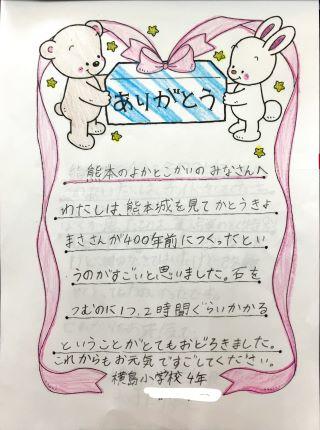 ありがとう
熊本のよかとこかいのみなさんへ
わたしは、熊本城を見てかとうきよ
まささんが400年前につくっただとい
うのがすごいと思いました。石を
つむのに1つ、2時間ぐらいかかる
ということがとてもおどろきました。
これからもお元気ですごしてください。
横島小学校4年